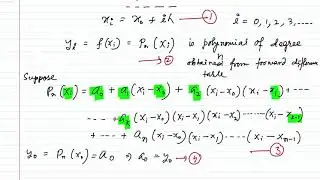 xᵢ = x₀ + ih —① i = 0, 1, 2, 3, ....
yᵢ = f(xᵢ) = Pₙ(xᵢ) is polynomial of degree n
②
obtained from forward difference table
Suppose
Pₙ(xᵢ) = a₀ + a₁(xᵢ-x₀) + a₂(xᵢ-x₀)(xᵢ-x₁)+----
----- + aᵢ(xᵢ-x₀)(xᵢ-x₁)(xᵢ-x₂)----(xᵢ-xᵢ₋₁)
+ --- + aₙ(xᵢ-x₀)(xᵢ-x₁)-----(xᵢ-xₙ₋₁)
③
y₀ = Pₙ(x₀) = a₀ ⇒ a₀ = y₀ —④